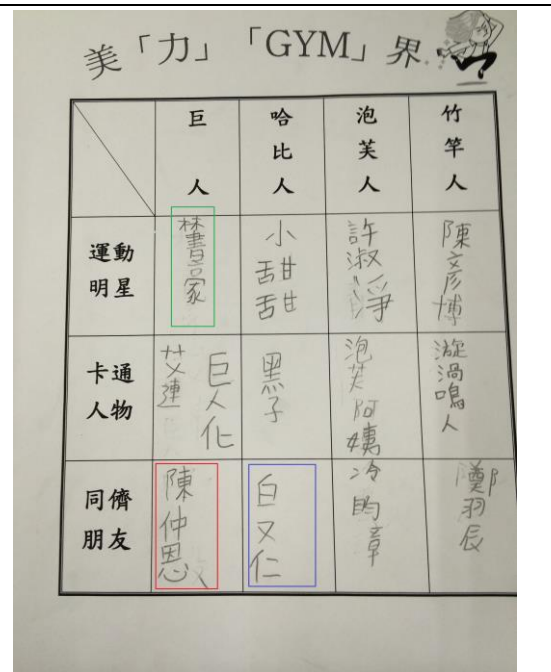 美「力」「GYM」界
巨人 哈比人 泡芙人 竹竿人
運動明星 林書豪 小甜甜 許淑淨 陳彥博
卡通人物 艾連 巨人化 黑子 泡芙阿姨 漩渦鳴人
同儕朋友 陳仲恩 白又仁 冷昀章 鄭羽辰